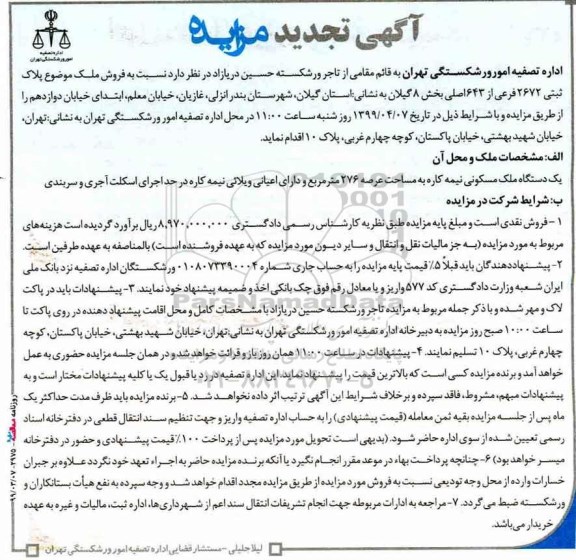 آگهی تجدید مزایده
اداره تصفیه
امور ورشکستگی تهران
اداره تصفیه امور ورشکستگی تهران به قائم مقامی از تاجر ورشکسته حسین دریازاد در نظر دارد نسبت به فروش ملک موضوع پلاک
ثبتی ۲۶۷۲ فرعی از ۶۴۳ اصلی بخش ۸ گیلان به نشانی: استان گیلان، شهرستان بندر انزلی، غازیان، خیابان معلم، ابتدای خیابان دوازدهم را
از طریق مزایده و با شرایط ذیل در تاریخ ۱۳۹۹/۰۴/۰۷ روز شنبه ساعت ۱۱:۰۰ در محل اداره تصفیه امور ورشکستگی تهران به نشانی: تهران،
خیابان شهید بهشتی، خیابان پاکستان، کوچه چهارم غربی، پلاک ۱۰ اقدام نماید.
الف: مشخصات ملک و محل آن
یک دستگاه ملک مسکونی نیمه کاره به مساحت عرصه ۲۷۶ متر مربع و دارای اعیانی ویلائی نیمه کاره در حد اجرای اسکلت آجری و سربندی
ب: شرایط شرکت در مزایده
۱- فروش نقدی است و مبلغ پایه مزایده طبق نظریه کارشناس رسمی دادگستری ۸,۹۷۰,۰۰۰,۰۰۰ ریال برآورد گردیده است هزینه‌های
مربوط به مورد مزایده (به جز مالیات نقل و انتقال و سایر دیون مورد مزایده که به عهده فروشنده است) بالمناصفه به عهده طرفین است.
۲- پیشنهاددهندگان باید قبلاً ۵٪ قیمت پایه مزایده را به حساب جاری شماره ۰۱۰۸۰۷۳۳۹۰۰۰۴ ورشکستگان اداره تصفیه نزد بانک ملی
ایران شعبه وزارت دادگستری کد ۵۷۷ واریز و یا معادل رقم فوق چک بانکی اخذ و ضمیمه پیشنهاد خود نمایند. ۳- پیشنهادات باید در پاکت
لاک و مهر شده و با ذکر جمله مربوط به مزایده تاجر ورشکسته حسین دریازاد با مشخصات کامل و محل اقامت پیشنهاد دهنده در روی پاکت تا
ساعت ۱۰:۰۰ صبح روز مزایده به دبیرخانه اداره تصفیه امور ورشکستگی تهران به نشانی: تهران، خیابان شهید بهشتی، خیابان پاکستان، کوچه
چهارم غربی، پلاک ۱۰ تسلیم نمایند. ۴- پیشنهادات در ساعت ۱۱:۰۰ همان روز باز و قرائت خواهد شد و در همان جلسه مزایده حضوری به عمل
خواهد آمد و برنده مزایده کسی است که بالاترین قیمت را پیشنهاد نماید این اداره تصفیه در رد یا قبول یک یا کلیه پیشنهادات مختار است و به
پیشنهادات مبهم، مشروط، فاقد سپرده و برخلاف شرایط این آگهی ترتیب اثر داده نخواهد شد. ۵- برنده مزایده باید ظرف مدت حداکثر یک
ماه پس از جلسه مزایده بقیه ثمن معامله (قیمت پیشنهادی) را به حساب اداره تصفیه واریز و جهت تنظیم سند انتقال قطعی در دفترخانه اسناد
رسمی تعیین شده از سوی اداره حاضر شود. (بدیهی است تحویل مورد مزایده پس از پرداخت ۱۰۰٪ قیمت پیشنهادی و حضور در دفترخانه
میسر خواهد بود) ۶- چنانچه پرداخت بهاء در موعد مقرر انجام نگیرد یا آنکه برنده مزایده حاضر به اجراء تعهد خود نگردد علاوه بر جبران
خسارات وارده از محل وجه تودیعی نسبت به فروش مورد مزایده از طریق مزایده مجدد اقدام خواهد شد و وجه سپرده به نفع هیأت بستانکاران و
ورشکسته ضبط می‌گردد. ۷- مراجعه به ادارات مربوطه جهت انجام تشریفات انتقال سند اعم از شهرداری‌ها، اداره ثبت، مالیات و غیره به عهده
خریدار می‌باشد.
لیلا جلیلی - مستشار قضایی اداره تصفیه امور ورشکستگی تهران
ParsNamadData